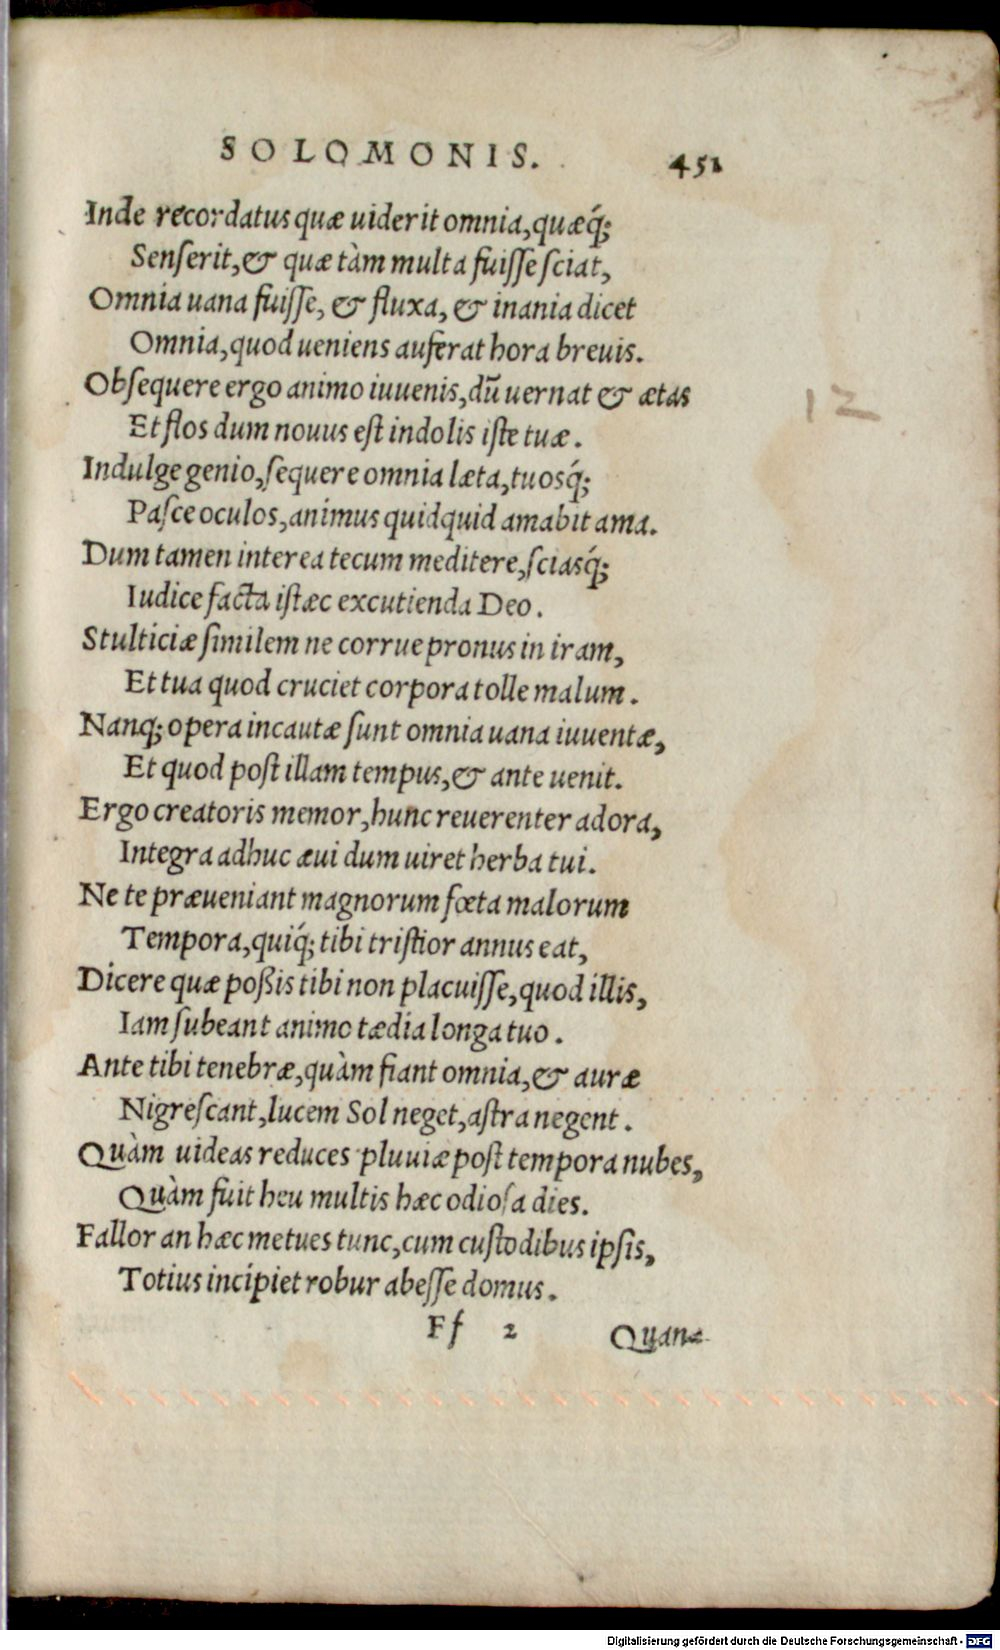 SOLOMONIS. 451
Inde recordatus quæ uiderit omnia, quæq́;
Senserit, & quæ tàm multa fuisse sciat,
Omnia uana fuisse, & fluxa, & inania dicet
Omnia, quod ueniens auferat hora breuis.
Obsequere ergo animo iuuenis, dū uernat & ætas
Et flos dum nouus est indolis iste tuæ.
Indulge genio, sequere omnia læta, tuosq́;
Pasce oculos, animus quidquid amabit ama.
Dum tamen interea tecum meditere, sciasq́;
Iudice facta istæc excutienda Deo.
Stulticiæ similem ne corrue pronus in iram,
Et tua quod cruciet corpora tolle malum.
Nanq; opera incautæ sunt omnia uana iuuentæ,
Et quod post illam tempus, & ante uenit.
Ergo creatoris memor, hunc reuerenter adora,
Integra adhuc æui dum uiret herba tui.
Ne te præueniant magnorum fœta malorum
Tempora, quiq́; tibi tristior annus eat,
Dicere quæ poßis tibi non placuisse, quod illis,
Iam subeant animo tædia longa tuo.
Ante tibi tenebræ, quàm fiant omnia, & auræ
Nigrescant, lucem Sol neget, astra negent.
Quàm uideas reduces pluuiæ post tempora nubes,
Quàm fuit heu multis hæc odiosa dies.
Fallor an hæc metues tunc, cum custodibus ipsis,
Totius incipiet robur abesse domus.
Ff 2 Quan-
12
Digitalisierung gefördert durch die Deutsche Forschungsgemeinschaft - DFG